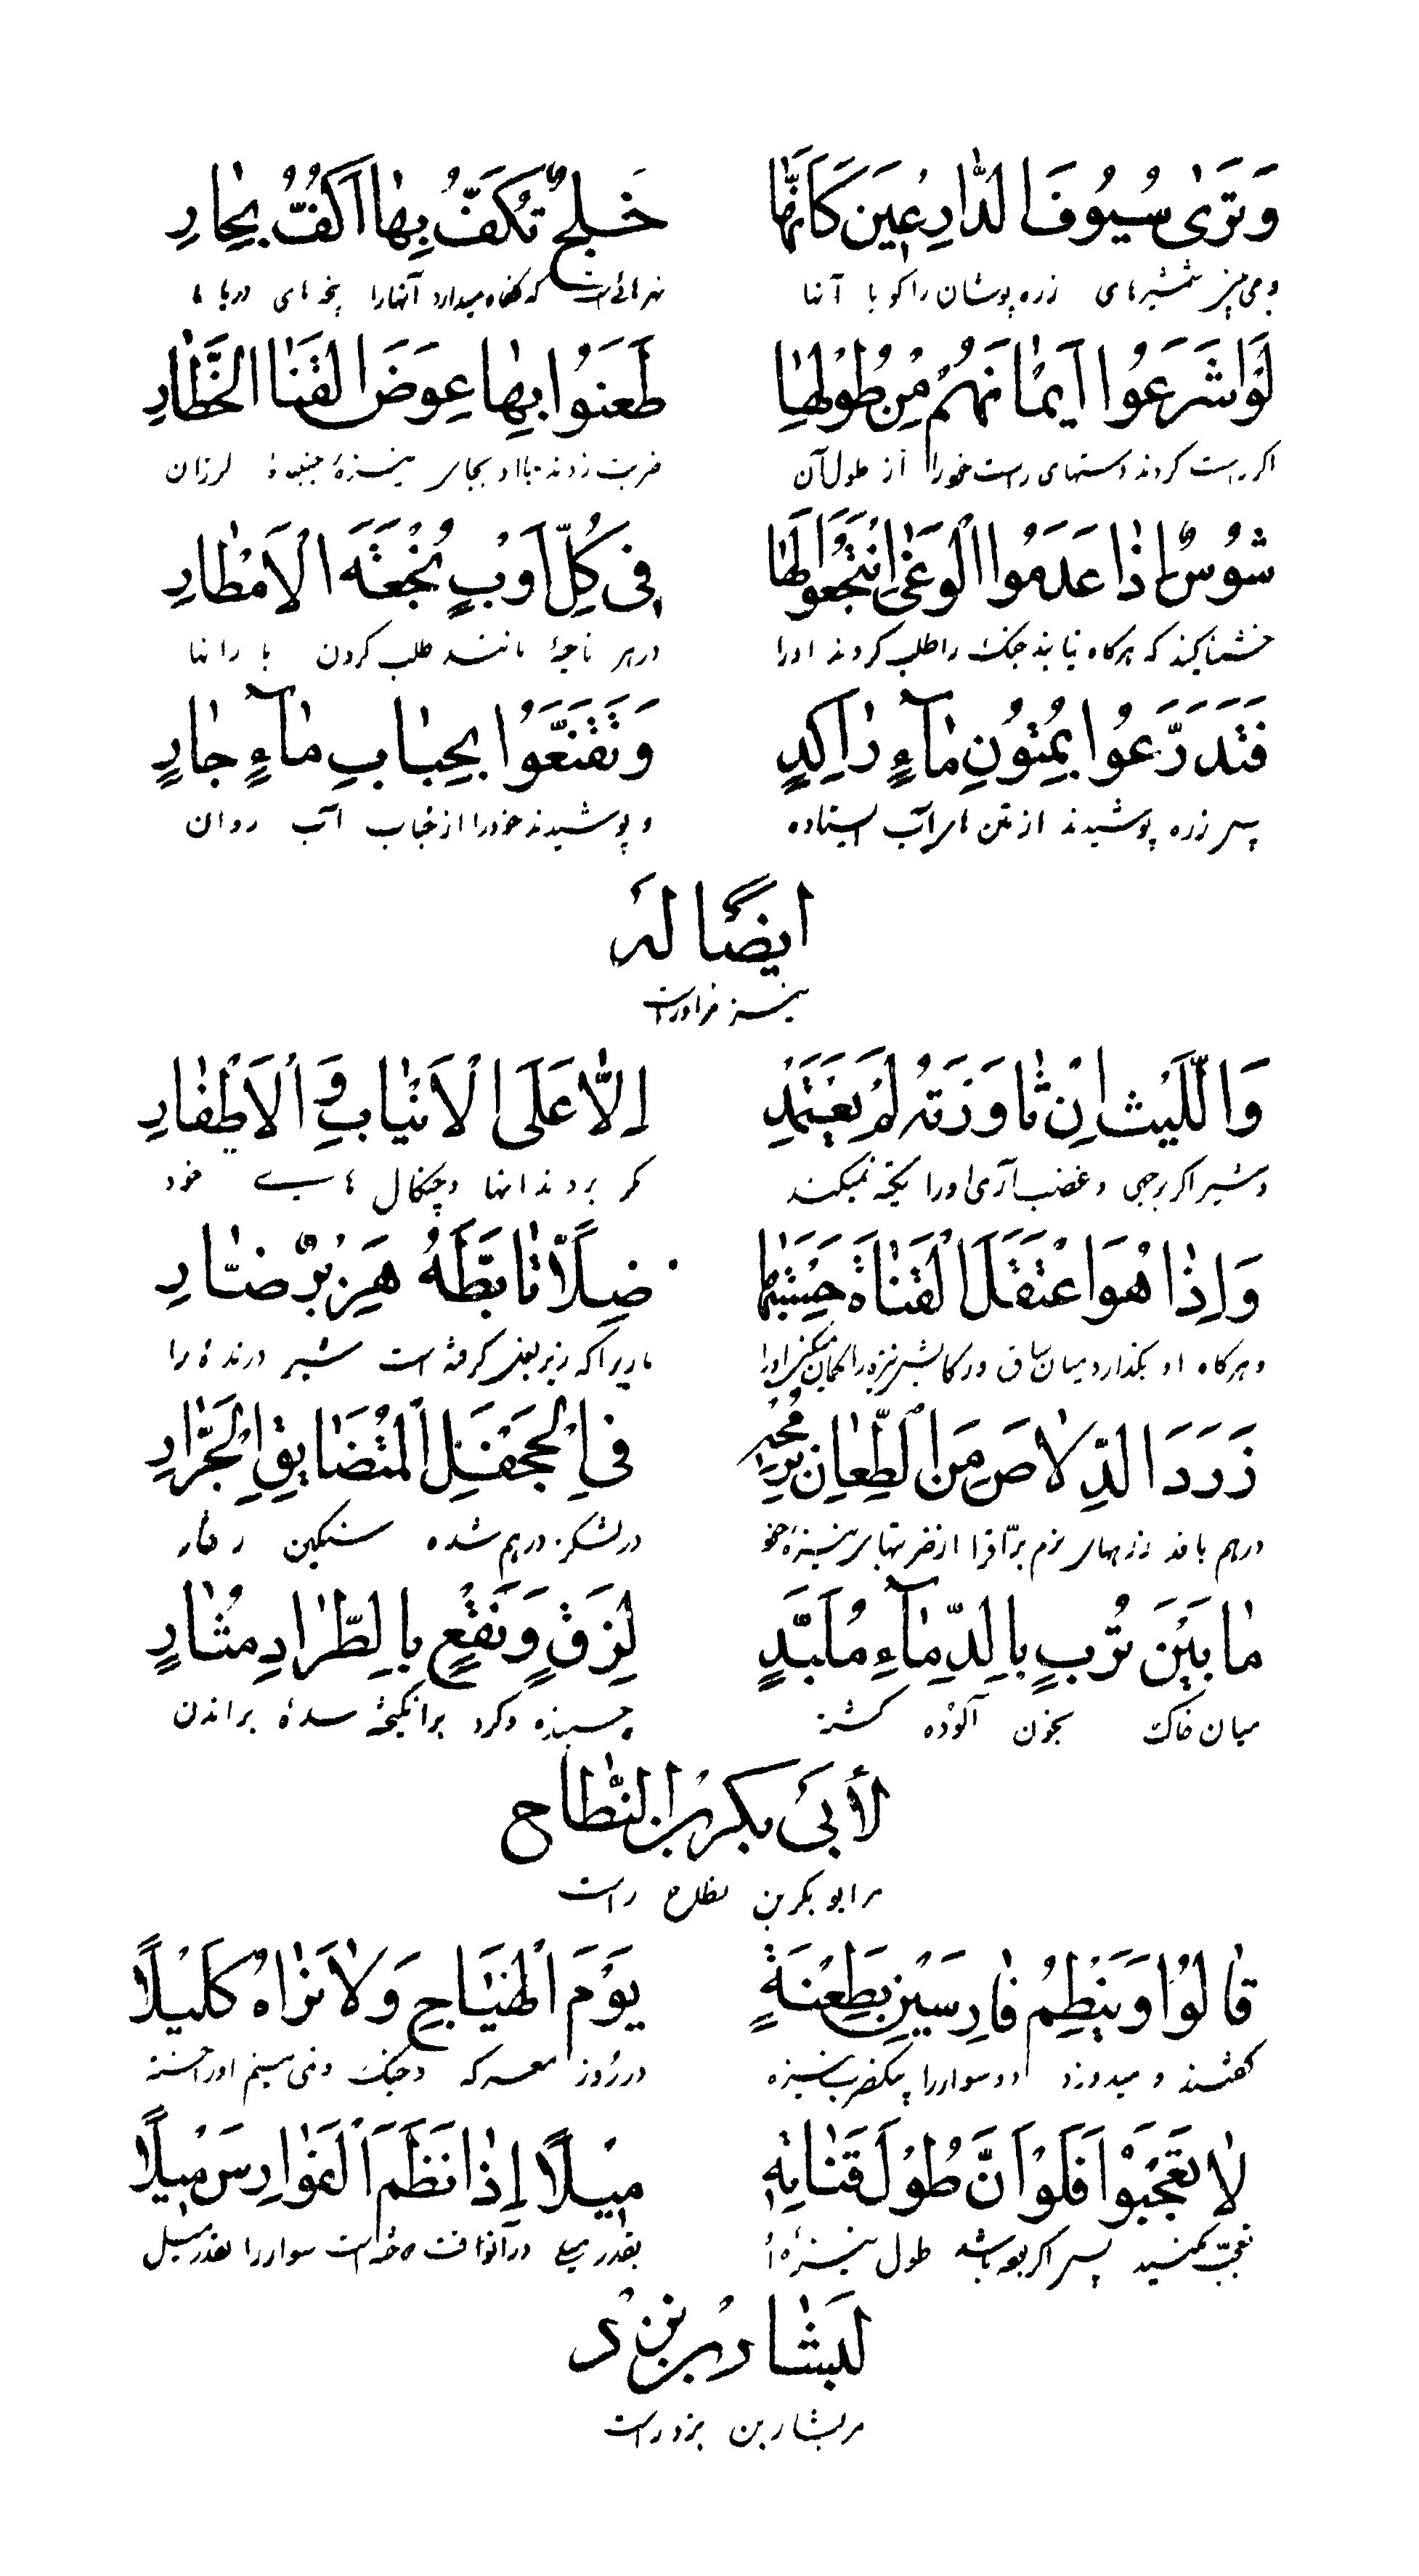 وَتَرٰى سُيُوفَ الدّٰارِعٖينَ كَاَنَّهٰا خَلِجٌ تَكُفُّ بِهٰا اَكُفُّ بِحٰارِ
و می بینی شمشیرهای زره پوشان را گویا آنها نهرهائی است که نگاه میدارد آنها را پنجه های دریا ها
لَوْ اَشْرَعُوا اَيْمٰانَهُمْ مِنْ طُوْلِهٰا طَعَنُوا بِهٰا عِوَضَ الْقَنَا الْخَطّٰارِ
اگر راست کردند دستهای راست خود را از طول آن ضربت زدند با او بجای نیزهٔ جنبندهٔ لرزان
شُوْسٌ اِذٰا عَدِمُوا الْوَغٰى اِنْتَجَعُوا لَهٰا فِى كُلِّ اَوْبٍ نُجْعَةَ الْاَمْطٰارِ
خشمناکیند که هر گاه نیابند جنگ را طلب کردند او را در هر ناحیهٔ مانند طلب کردن بارانها
فَتَدَرَّعُوا بِمُتُوْنِ مٰآءٍ رٰاكِدٍ وَتَقَنَّعُوا بِحِبٰابِ مٰآءٍ جٰارٍ
پس زره پوشیدند از متن های آب ایستاده و پوشیدند خود را از حباب آب روان
ايضًا لَهُ
نیز مر او راست
وَاللَّيْثُ اِنْ ثٰاوَرْتَهُ لَمْ يَعْتَمِدْ اِلّٰا عَلَى الْاَنْيٰابِ وَ الْاَظْفٰارِ
و شیر اگر برجهی و غضب آری او را تکیه نمیکند مگر بر دندانها و چنگال هایی خود
وَاِذٰا هُوَ اعْتَقَلَ الْقَنٰاةَ حَسِبْتَهٰا صِلًّا تَاَبَّطَهُ هِزَبْرٌ ضٰارِ
و هرگاه او بگذارد میان ساق و رکابش نیزه را گمان میکنی او را ماریرا که زیر بغل گرفته است شیر درندهٔ را
زَرَدَ الدِّلٰاصَ مِنَ الطِّعٰانِ بِرُمْحِهِ فِى الْجَحْفَلِ الْمُتَضٰايِقِ الْجَرّٰارِ
درهم بافد زرههای نرم برّاق را از ضربتهای نیزهٔ خود در لشکر درهم شده سنگین رفتار
مٰا بَيْنَ تُرْبٍ بِالدِّمٰآءِ مُلَبَّدٍ لَزِقٍ وَنَقْعٍ بِالطِّرٰادِ مُثٰارٍ
میان خاک بخون آلوده گشته چسبنده و گرد برانگیخته شدهٔ براندن
لأَبي بَكرِ بْنِ النَّطّٰاح
مر ابو بکر بن نطاح راست
قٰالُوْا وَيَنْظِمُ فٰارِسَيْنِ بِطَعْنَةٍ يَوْمَ الْهَيٰاجِ وَلٰا نَرٰاهُ كَلٖيْلًا
گفتند و میدوزد دو سوار را بیکضربت نیزه در روز معرکه و جنگ و نمی بینیم او را خسته
لٰا تَعْجَبُوْا فَلَوْ اَنَّ طُوْلَ قَنٰاتِهٖ مٖيْلًا اِذًا نَظَمَ الْفَوٰارِسَ مٖيْلًا
تعجّب مکنید پس اگر بوده باشد طول نیزهٔ او بقدر میلی در آنوقت دوخته است سواران را بقدر میل
لِبَشّٰارِ بْنِ بُرْدٍ
مر بشار بن برد راست